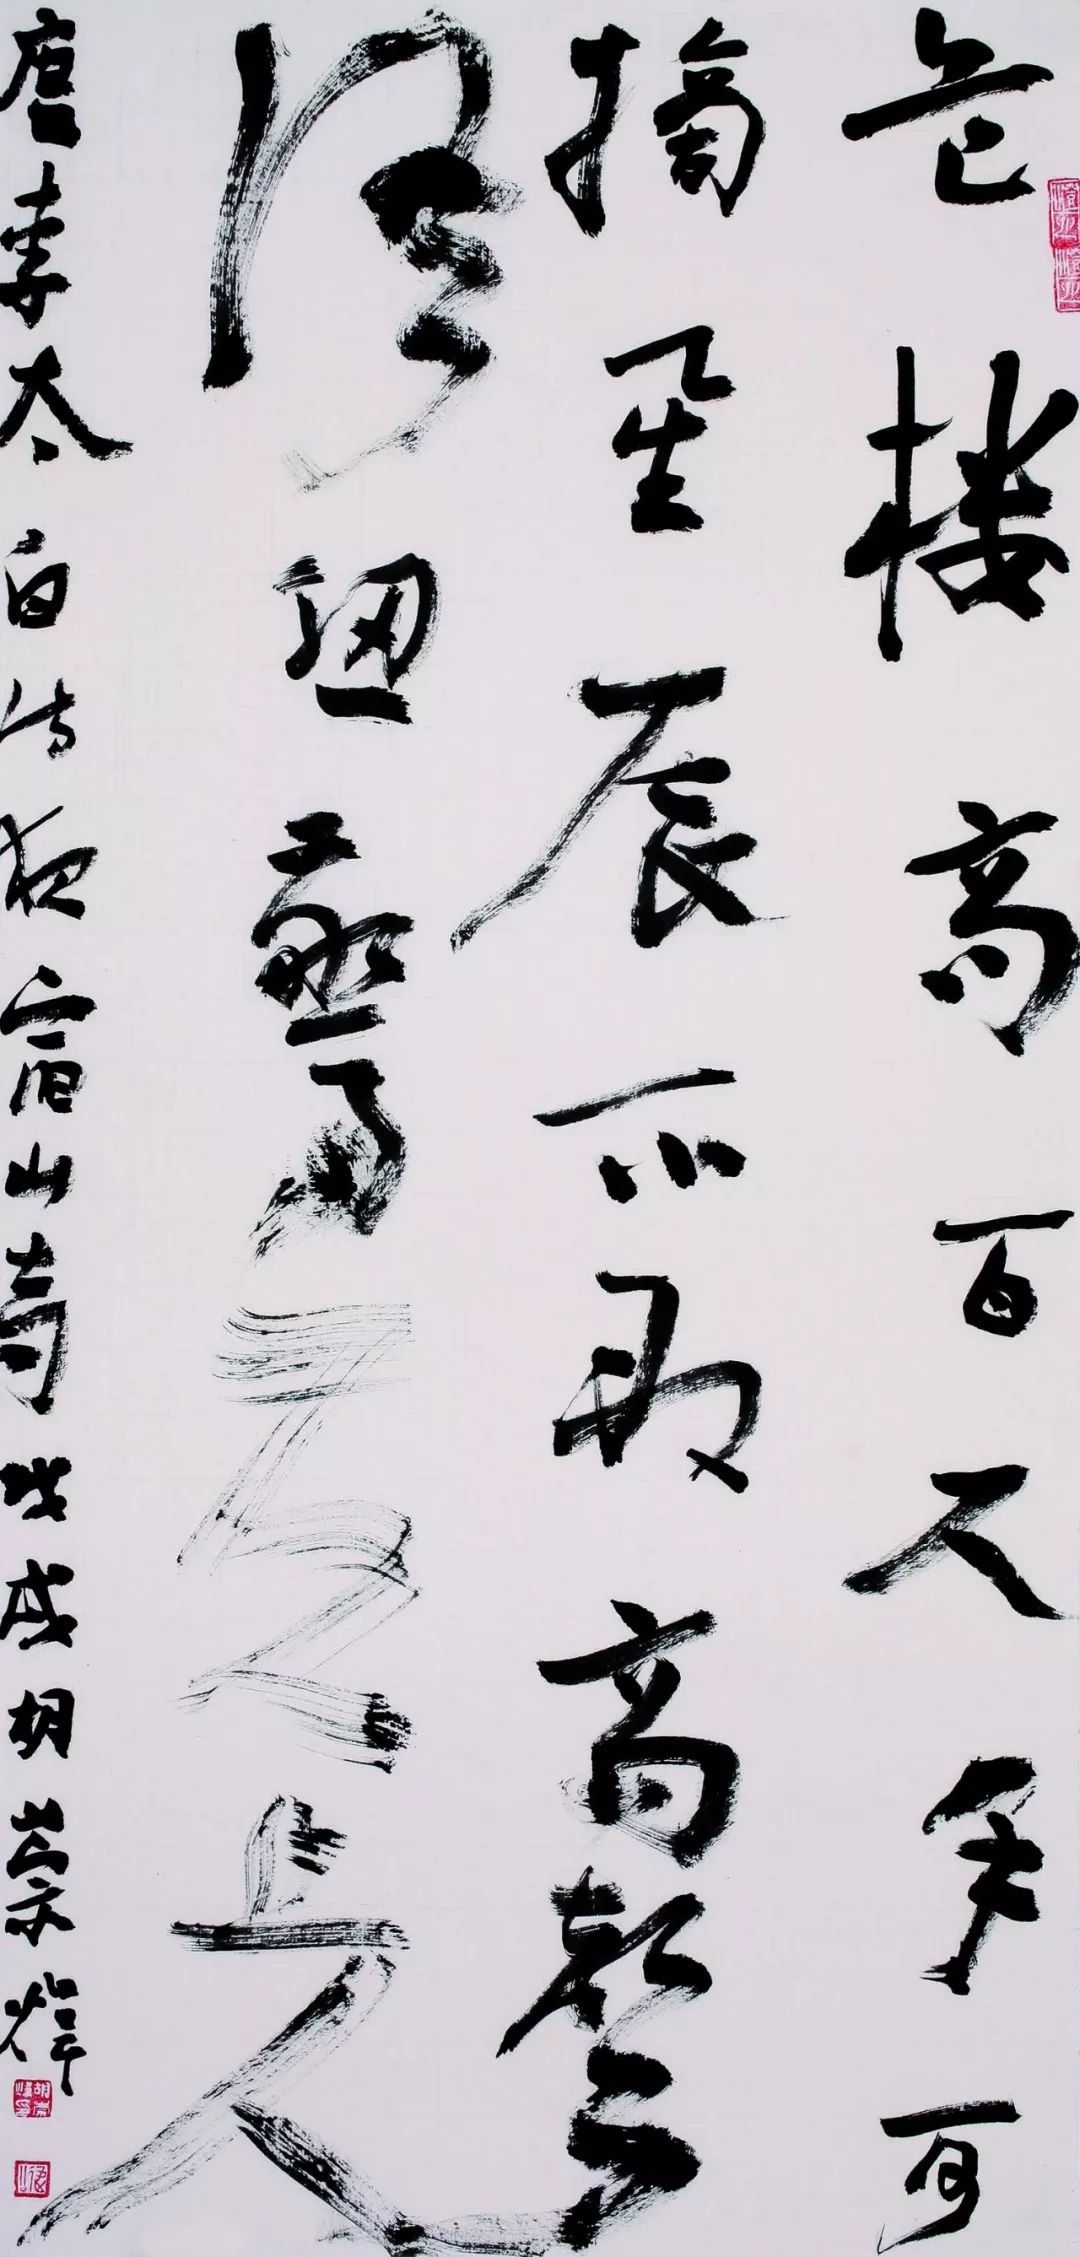 危楼高百尺手可
摘星辰不敢高聲
语恐驚天上人
唐李太白诗夜宿山寺戊戌胡崇煒